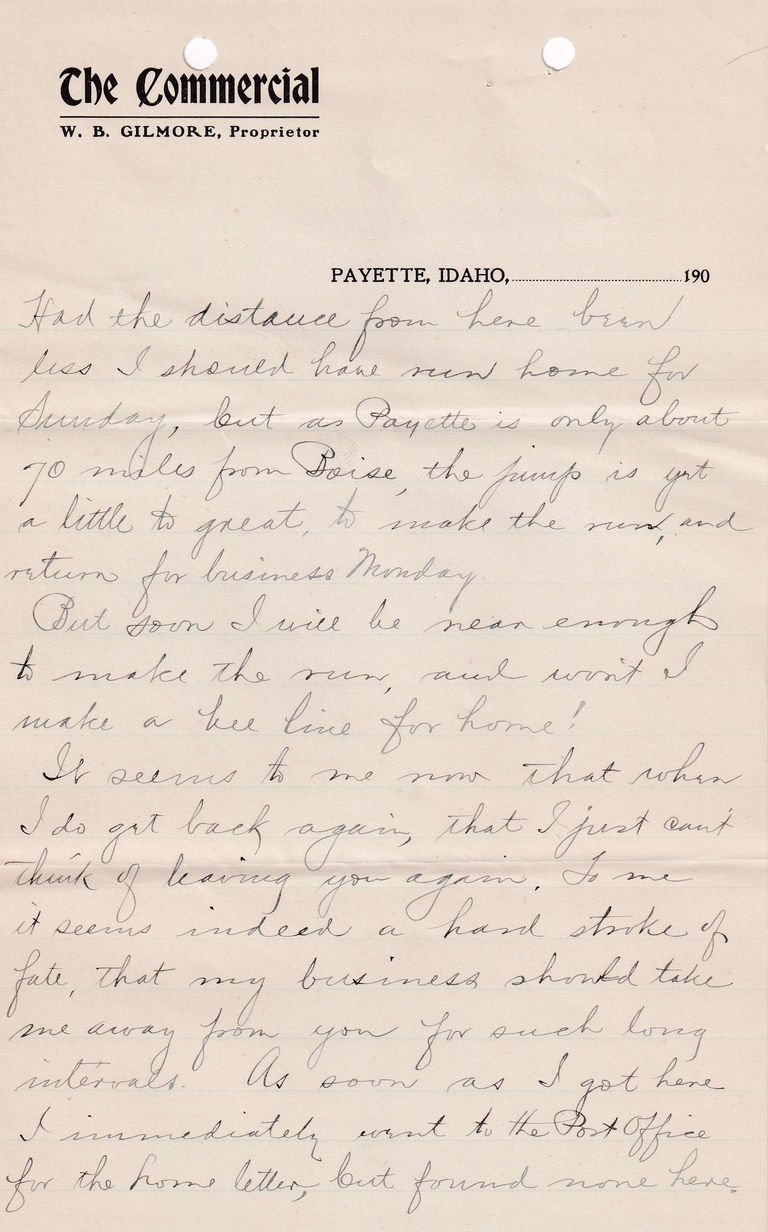 The Commercial
W. B. GILMORE, Proprietor
PAYETTE, IDAHO,..............................190
Had the distance from here been
less I should have run home for
Sunday, but as Payette is only about
70 miles from Boise, the jump is yet
a little to great, to make the run, and
return for business Monday.
But soon I will be near enough
to make the run, and won't I
make a bee line for home!
It seems to me now that when
I do get back again, that I just can't
think of leaving you again. To me
it seems indeed a hard stroke of
fate, that my business should take
me away from you for such long
intervals. As soon as I got here
I immediately went to the Post Office
for the home letter, but found none here.